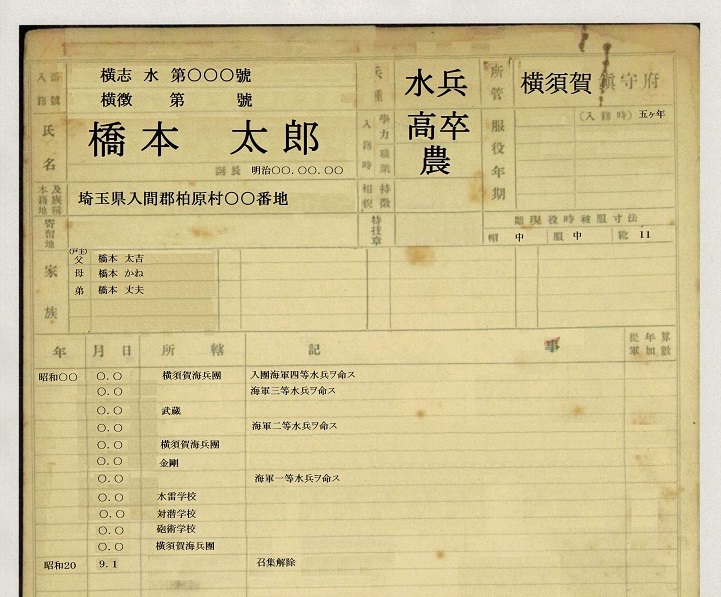 入籍番號 横志 水 第〇〇〇號
横徴 第 號
兵種 水兵
所管 横須賀鎮守府
氏名 橋本 太郎
誕辰 明治〇〇.〇〇.〇〇
入籍時 學力 職業 高卒 農
服役年期 (入籍時) 五ヶ年
本籍地及族稱 埼玉県入間郡柏原村〇〇番地
特徴 相貌
寄留地
特技章
離現役時被服寸法
帽 中 服 中 靴 11
家族
(戸主)
父 橋本 太吉
母 橋本 かね
弟 橋本 丈夫
年 月 日 所轄 記事 從軍年加算數
昭和〇〇 〇.〇 横須賀海兵團 入團海軍四等水兵ヲ命ス
〇.〇 海軍三等水兵ヲ命ス
〇.〇 武蔵
〇.〇 海軍二等水兵ヲ命ス
〇.〇 横須賀海兵團
〇.〇 金剛
〇.〇 海軍一等水兵ヲ命ス
〇.〇 水雷学校
〇.〇 対潜学校
〇.〇 砲術学校
〇.〇 横須賀海兵團
昭和20 9.1 召集解除